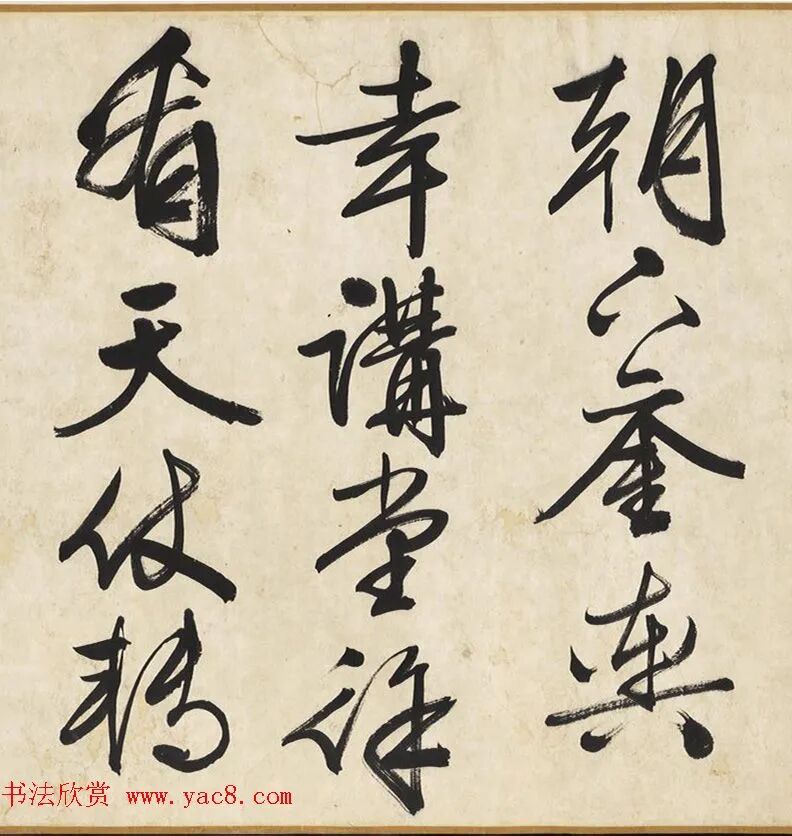 朝鑾輿
幸講堂徐
看天仗轉
书法欣赏 www.yac8.com